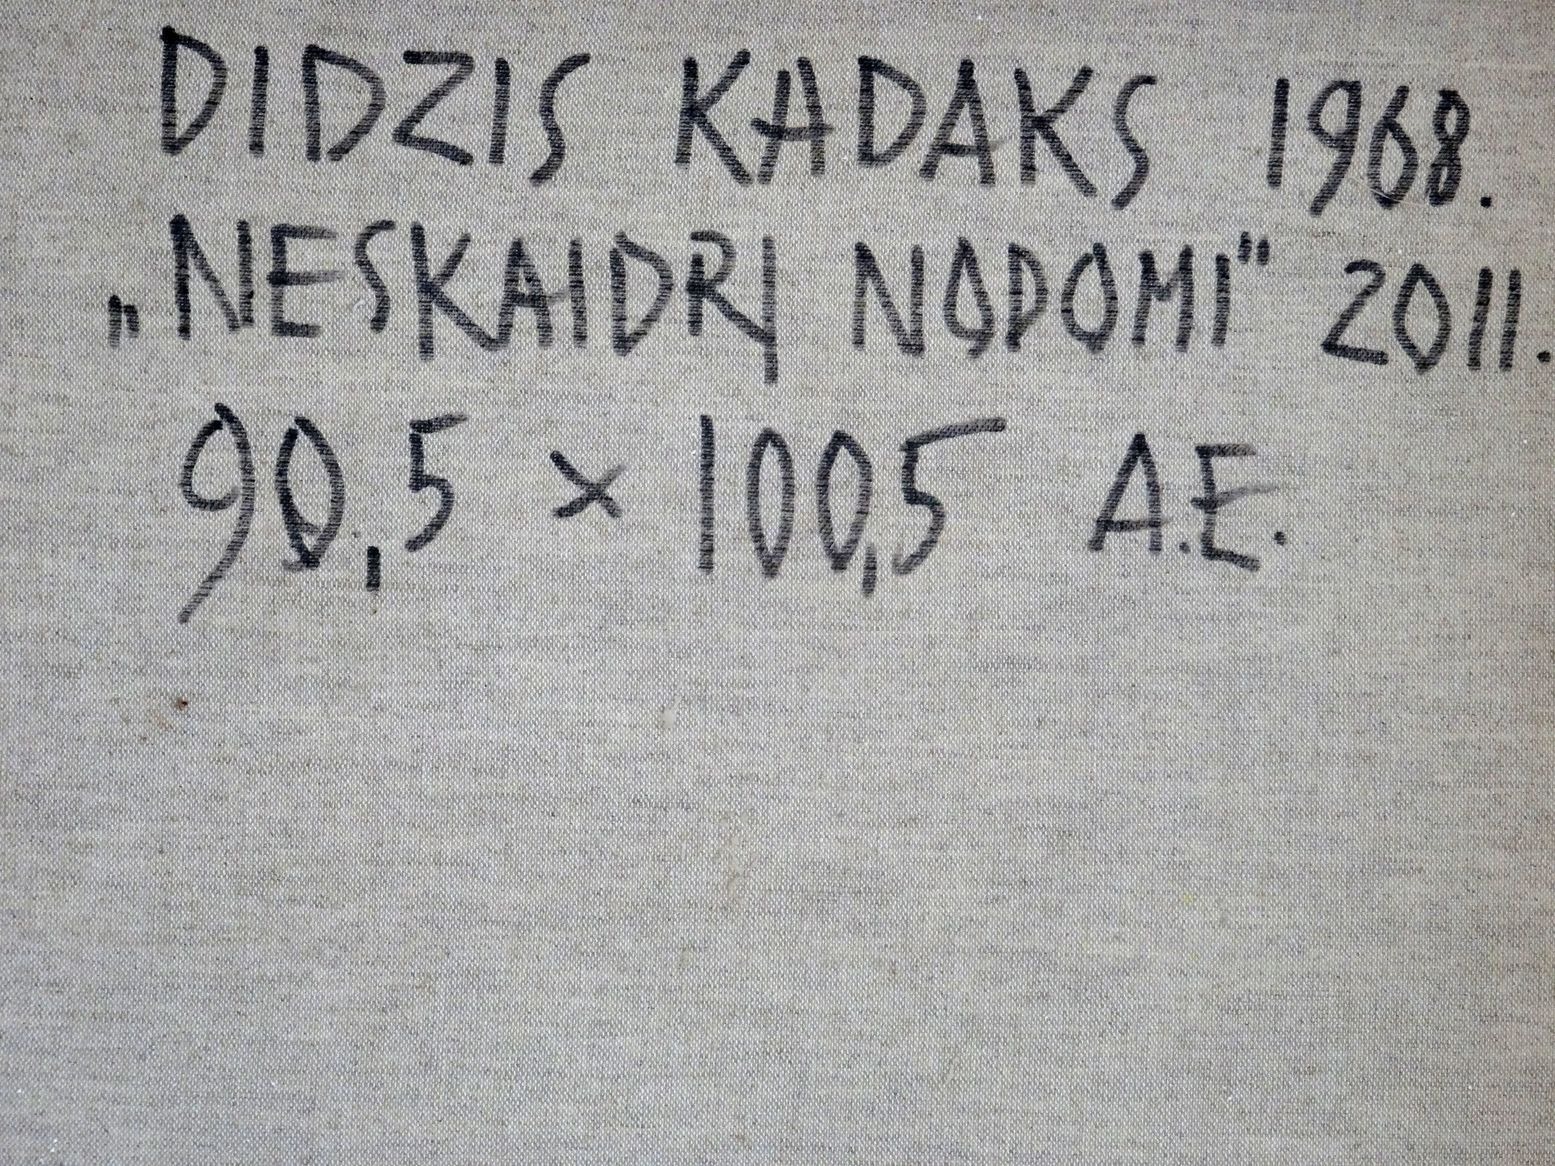 DIDZIS KADAKS 1968.
„NESKAIDRI NODOMI“ 2011.
90,5 x 100,5 A.E.